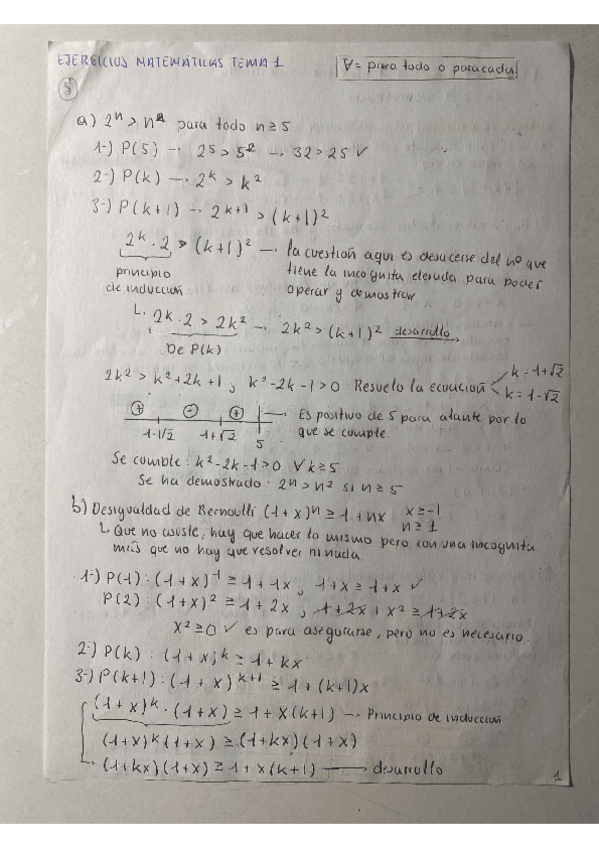 EJERCICIOS MATEMÁTICAS TEMA 1
∀ = para todo o para cada
5
a) 2ⁿ > n² para todo n ≥ 5
1-) P(5) → 2⁵ > 5² → 32 > 25 ✓
2-) P(k) → 2ᵏ > k²
3-) P(k+1) → 2ᵏ⁺¹ > (k+1)²
2ᵏ · 2 > (k+1)² → la cuestión aquí es desacerse del nº que
tiene la incognita elevada para poder
operar y demostrar
principio
de inducción
2k · 2 > 2k² → 2k² > (k+1)² desarrollo
De P(k)
2k² > k² + 2k + 1 ; k² - 2k - 1 > 0 Resuelo la ecuación
k = 1+√2
k = 1-√2
+ - + → Es positivo de 5 para alante por lo
que se cumple
1-√2 1+√2 5
Se cumple: k² - 2k - 1 > 0 ∀k ≥ 5
Se ha demostrado: 2ⁿ > n² si n ≥ 5
b) Desigualdad de Bernoulli (1+x)ⁿ ≥ 1 + nx x ≥ -1
n ≥ 1
Que no asuste, hay que hacer lo mismo pero con una incognita
más que no hay que resolver ni nada.
1-) P(1) : (1+x)⁻¹ ≥ 1 + 1x ; 1+x ≥ 1+x ✓
P(2) : (1+x)² ≥ 1 + 2x ; 1+2x+x² ≥ 1+2x
x² ≥ 0 ✓ es para asegurarse, pero no es necesario.
2-) P(k) : (1+x)ᵏ ≥ 1 + kx
3-) P(k+1) : (1+x)ᵏ⁺¹ ≥ 1 + (k+1)x
(1+x)ᵏ · (1+x) ≥ 1 + x(k+1) → Principio de inducción
(1+x)ᵏ(1+x) ≥ (1+kx)(1+x)
(1+kx)(1+x) ≥ 1 + x(k+1) → desarrollo
1